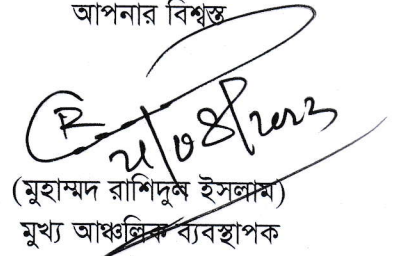 আপনার বিশ্বস্ত
(মুহাম্মদ রাশিদুল ইসলাম)
মুখ্য আঞ্চলিক ব্যবস্থাপক